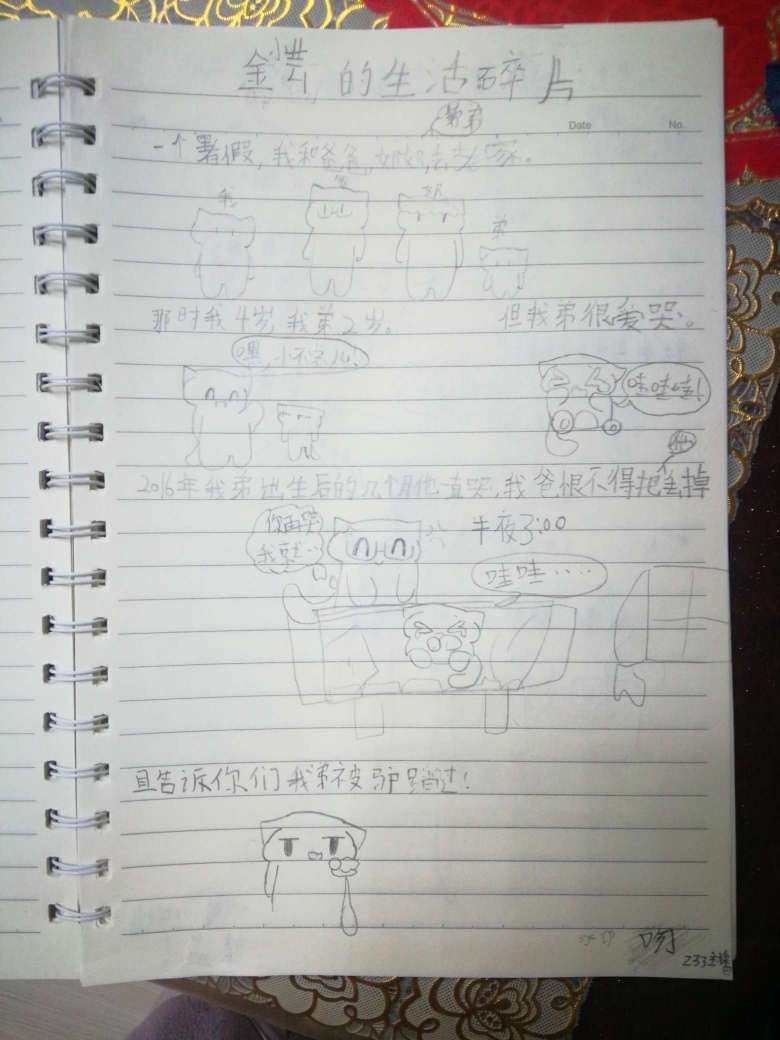 的生活碎片
弟弟
Date No.
一个暑假,我和爸爸,奶奶,去老家。
我 爸 奶 弟
那时我4岁 我弟2岁。 但我弟很爱哭。
嘿,小不点儿! 哇哇哇!
他
2016年我弟出生后的几个月他一直哭,我爸恨不得把丢掉
你再哭 半夜3:00
我就…
哇哇····
且告诉你们我弟被驴踢过!
呀
233主播